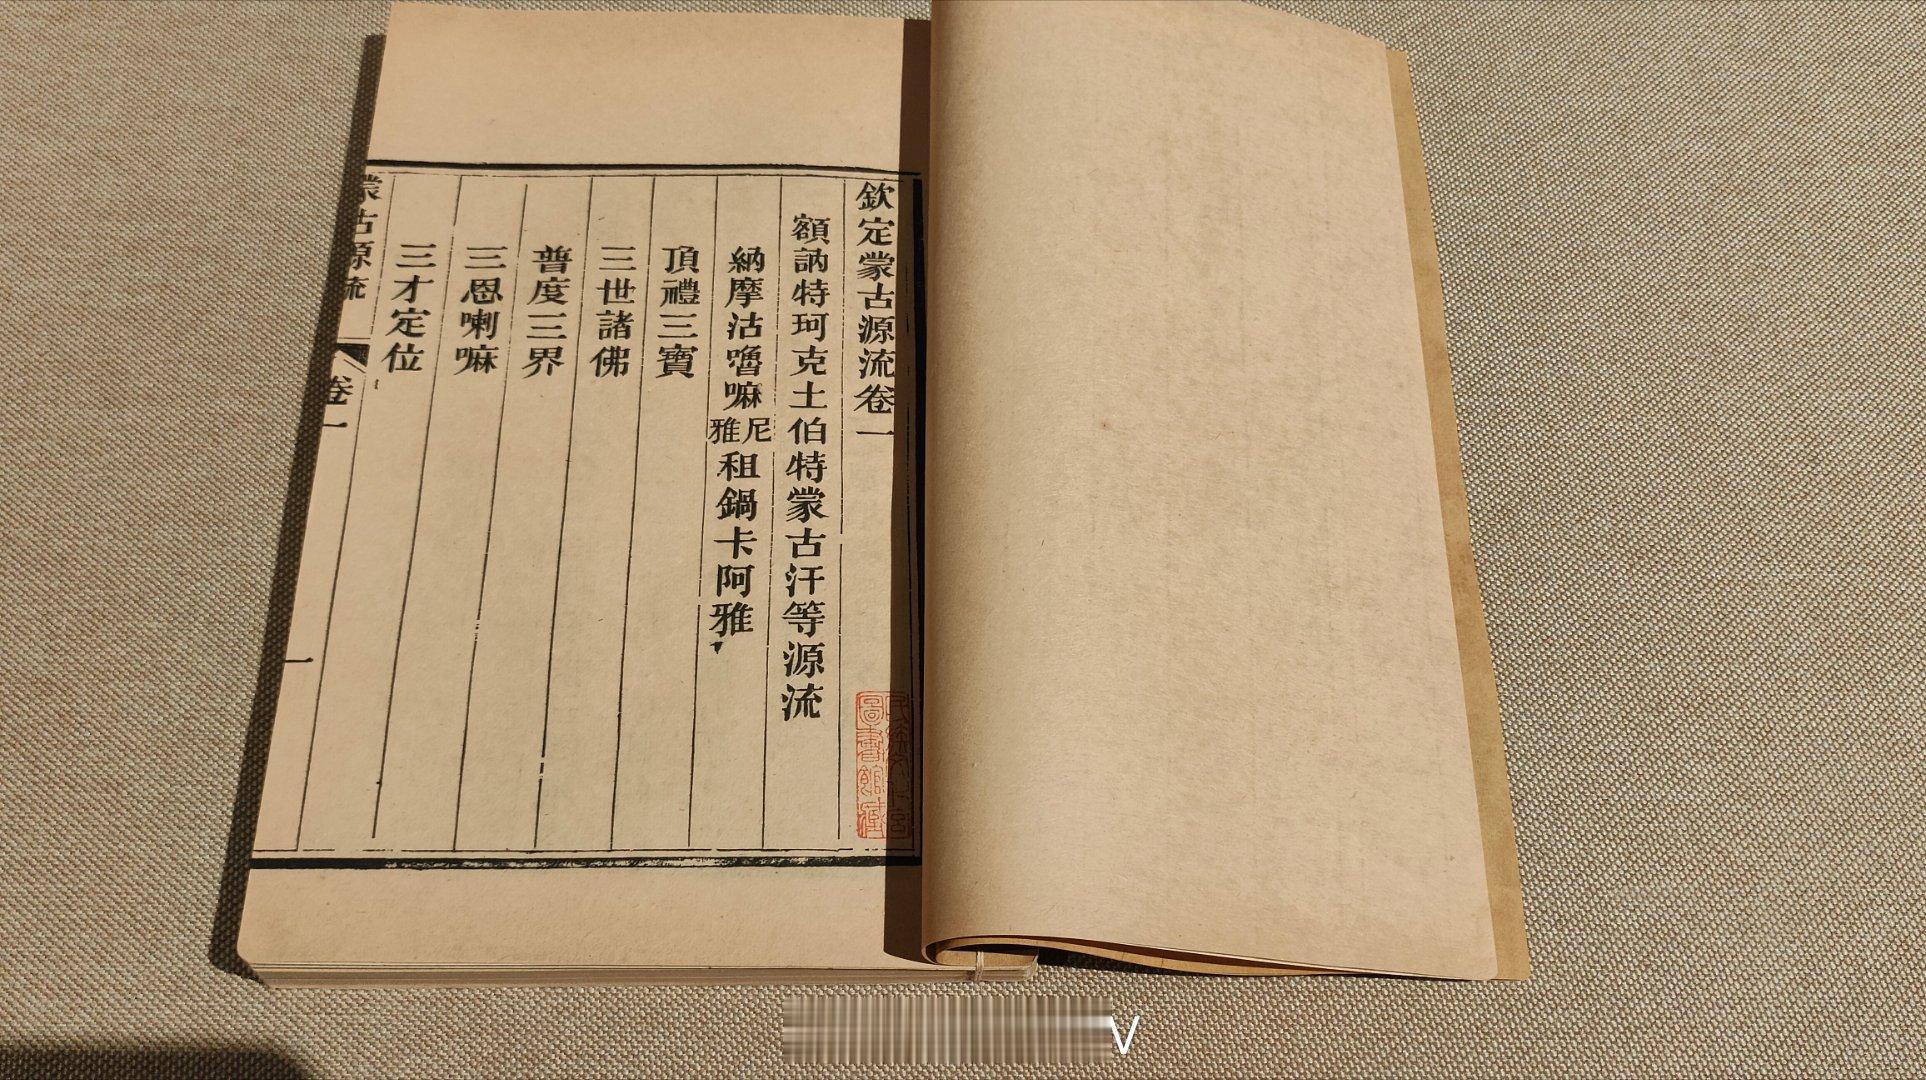 欽定蒙古源流卷一
額訥特珂克土伯特蒙古汗等源流
納摩沽嚕嘛尼雅租鍋卡阿雅
頂禮三寶
三世諸佛
普度三界
三恩喇嘛
三才定位
蒙古源流 卷一 一
民族文化宮
圖書館藏
V